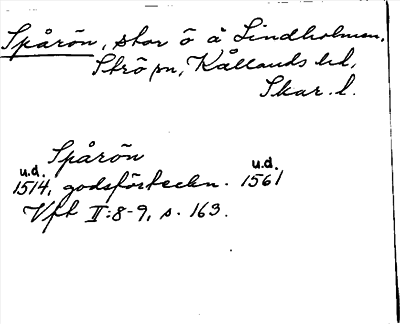 Spårön, stor ö å Lindholmen,
Strö sn, Kållands hd,
Skar. l.
Spårön
u.d. u.d.
1514, godsförteckn. 1561
Vft II:8-9, s. 163.